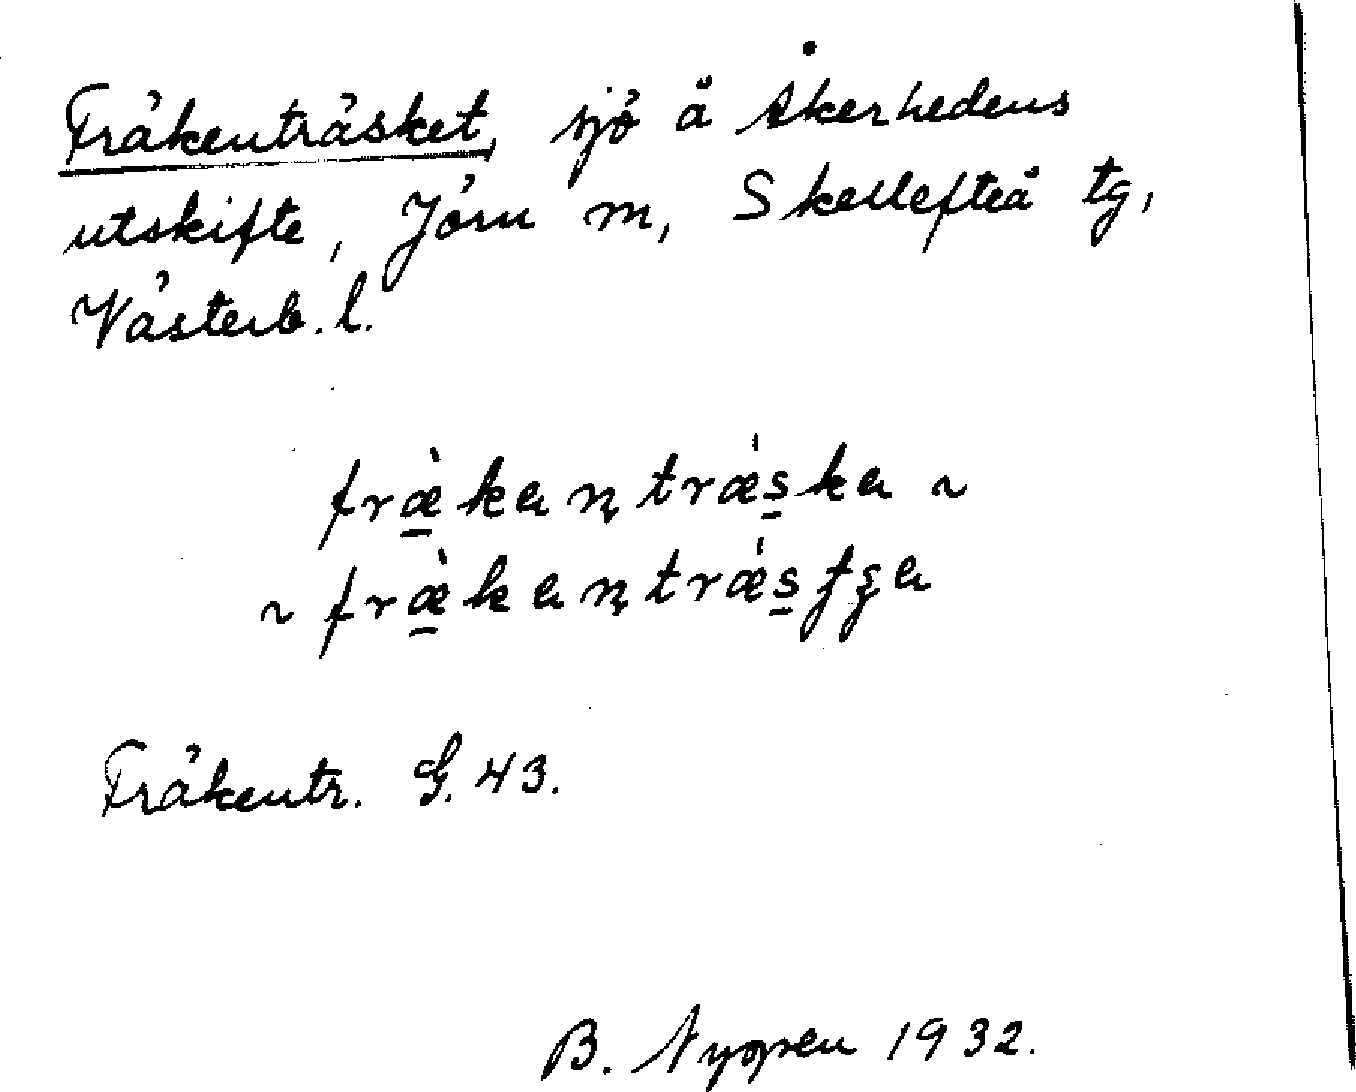 Fräkenträsket, sjö å Åkerhedens
utskifte, Jörn m, Skellefteå tg,
Västerb. l.
fræ̀kanträ́ska ~
~ fræ̀kanträ́sʈʂa
Fräkentr. G. 43.
B. Nygren 1932.